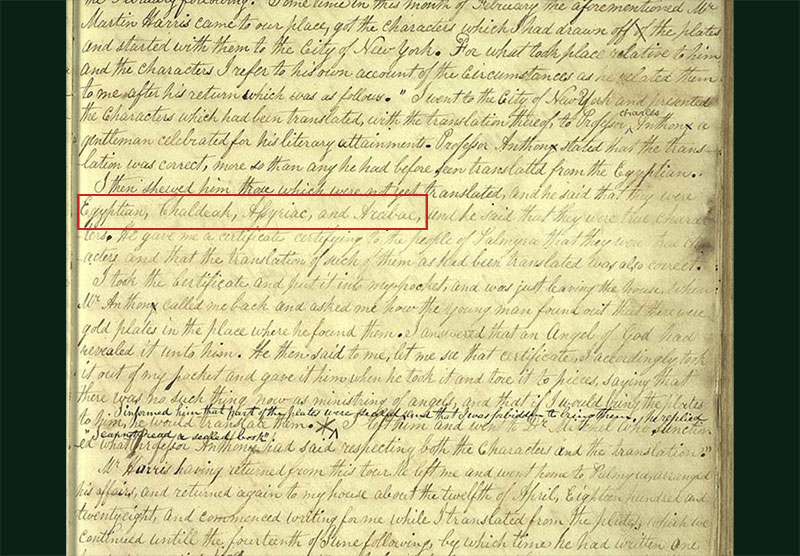 the February following. Some time in this month of February the aforementioned Mr
Martin Harris came to our place, got the characters which I had drawn off the plates
and started with them to the City of New York. For what took place relative to him
and the characters I refer to his own account of the circumstances as he related them
to me after his return which was as follows. "I went to the City of New York and presented
the Characters which had been translated, with the translation thereof, to Professor charles Anthony a
gentleman celebrated for his literary attainments. Professor Anthony stated that the trans-
lation was correct, more so than any he had before seen translated from the Egyptian.
I then shewed him those which were not yet translated, and he said that they were
Egyptian, Chaldeak, Assyriac, and Arabac, and he said that they were true charac-
ters. He gave me a certificate certifying to the people of Palmyra that they were true char
acters and that the translation of such of them as had been translated was also correct.
I took the Certificate and put it into my pocket, and was just leaving the house, when
Mr Anthony called me back and asked me how the young man found out that there were
gold plates in the place where he found them. I answered that an Angel of God had
revealed it unto him. He then said to me, let me see that certificate, I accordingly took
it out of my pocket and gave it him when he took it and tore it to pieces, saying that
there was no such thing now as ministring of angels, and that if I would bring the plates
I informed him that part of the plates were sealed and that I was forbidden to bring them, he replied
to him, he would translate them. I left him and went to Dr Mitchel who sanction
"I cannot read a sealed book".
ed what Professor Anthony had said respecting both the Characters and the translation"
Mr Harris having returned from this tour he left me and went home to Palmyra, arranged
his affairs, and returned again to my house about the twelfth of April, Eighteen hundred and
twentyeight, and commenced writing for me while I translated from the plates, which we
continued untill the fourteenth of June following, by which time he had written one